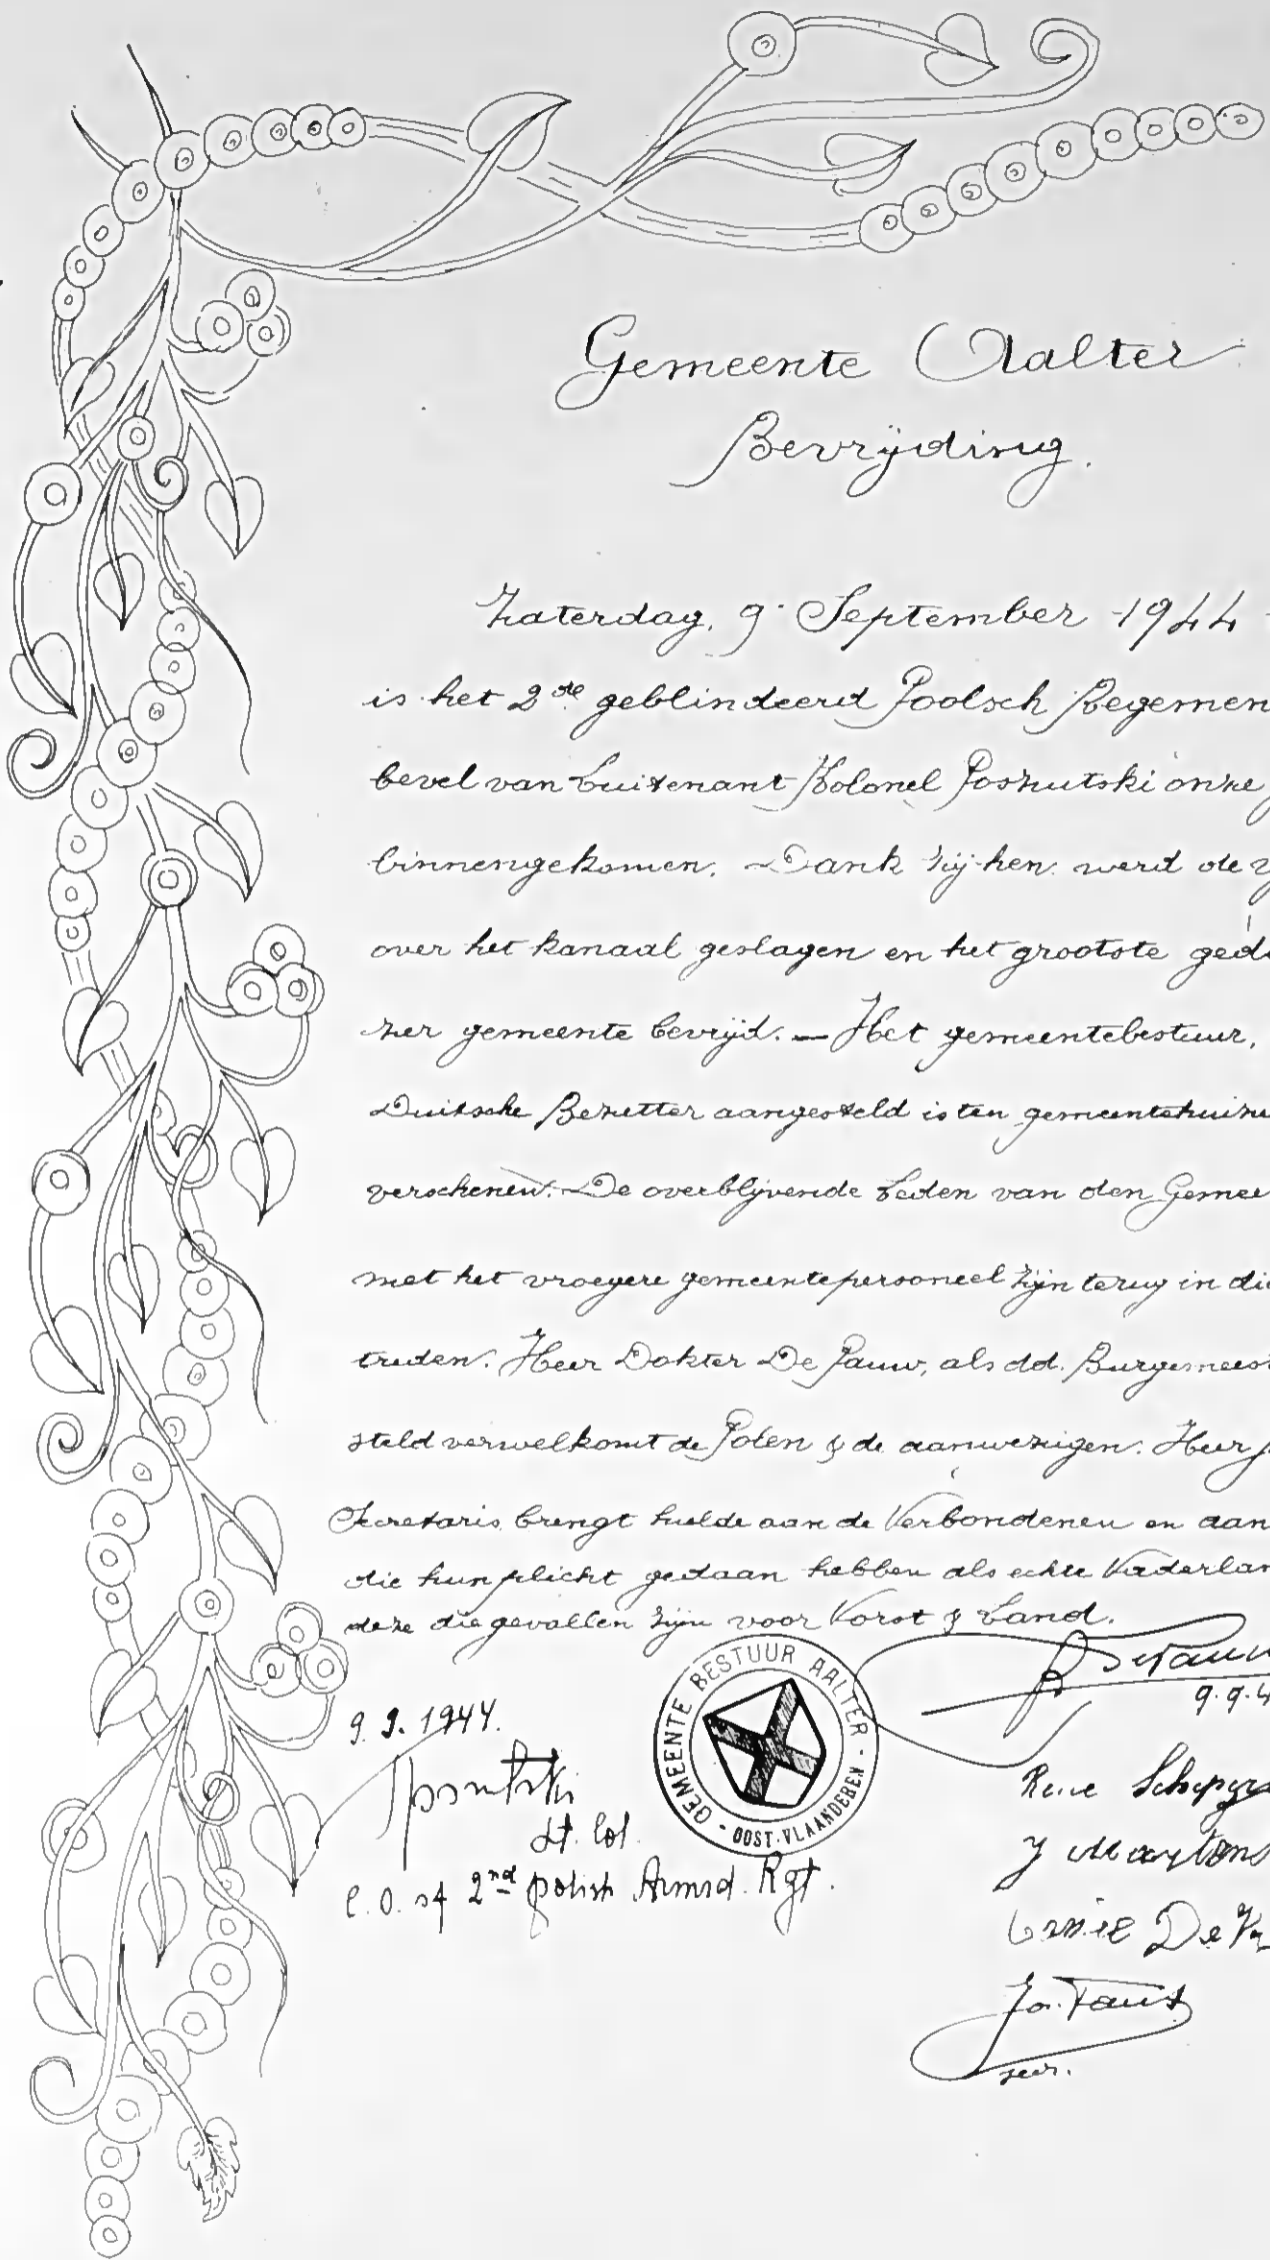 Gemeente Aalter
Bevrijding.
Zaterdag, 9 September 1944 -
is het 2de geblindeerd Poolsch Regemen
bevel van Luitenant Kolonel Poszutski onze
binnengekomen. Dank zij hen werd de
over het kanaal geslagen en het grootste gede
zer gemeente bevrijd. — Het gemeentebestuur,
Duitsche Bezetter aangesteld is ten gemeentehuize
verschenen. De overblijvende Leden van den Gemee
met het vroegere gemeentepersoneel zijn terug in die
treden. Heer Dokter De Pauw, als dd. Burgemeest
steld verwelkomt de Polen & de aanwezigen. Heer
Secretaris brengt hulde aan de Verbondenen en aan
die hun plicht gedaan hebben als echte Vaderlan
deze die gevallen zijn voor Vorst & Land.
GEMEENTE BESTUUR AALTER - OOST-VLAANDEREN -
9.9.4
9.9.1944.
Lt. Col.
C.O. of 2nd Polish Armrd. Rgt.
René
De
secr.